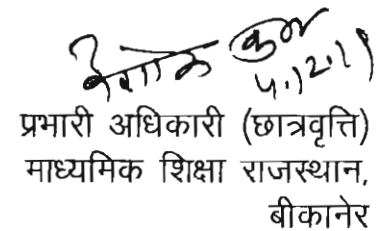 5.12.11
प्रभारी अधिकारी (छात्रवृत्ति)
माध्यमिक शिक्षा राजस्थान,
बीकानेर